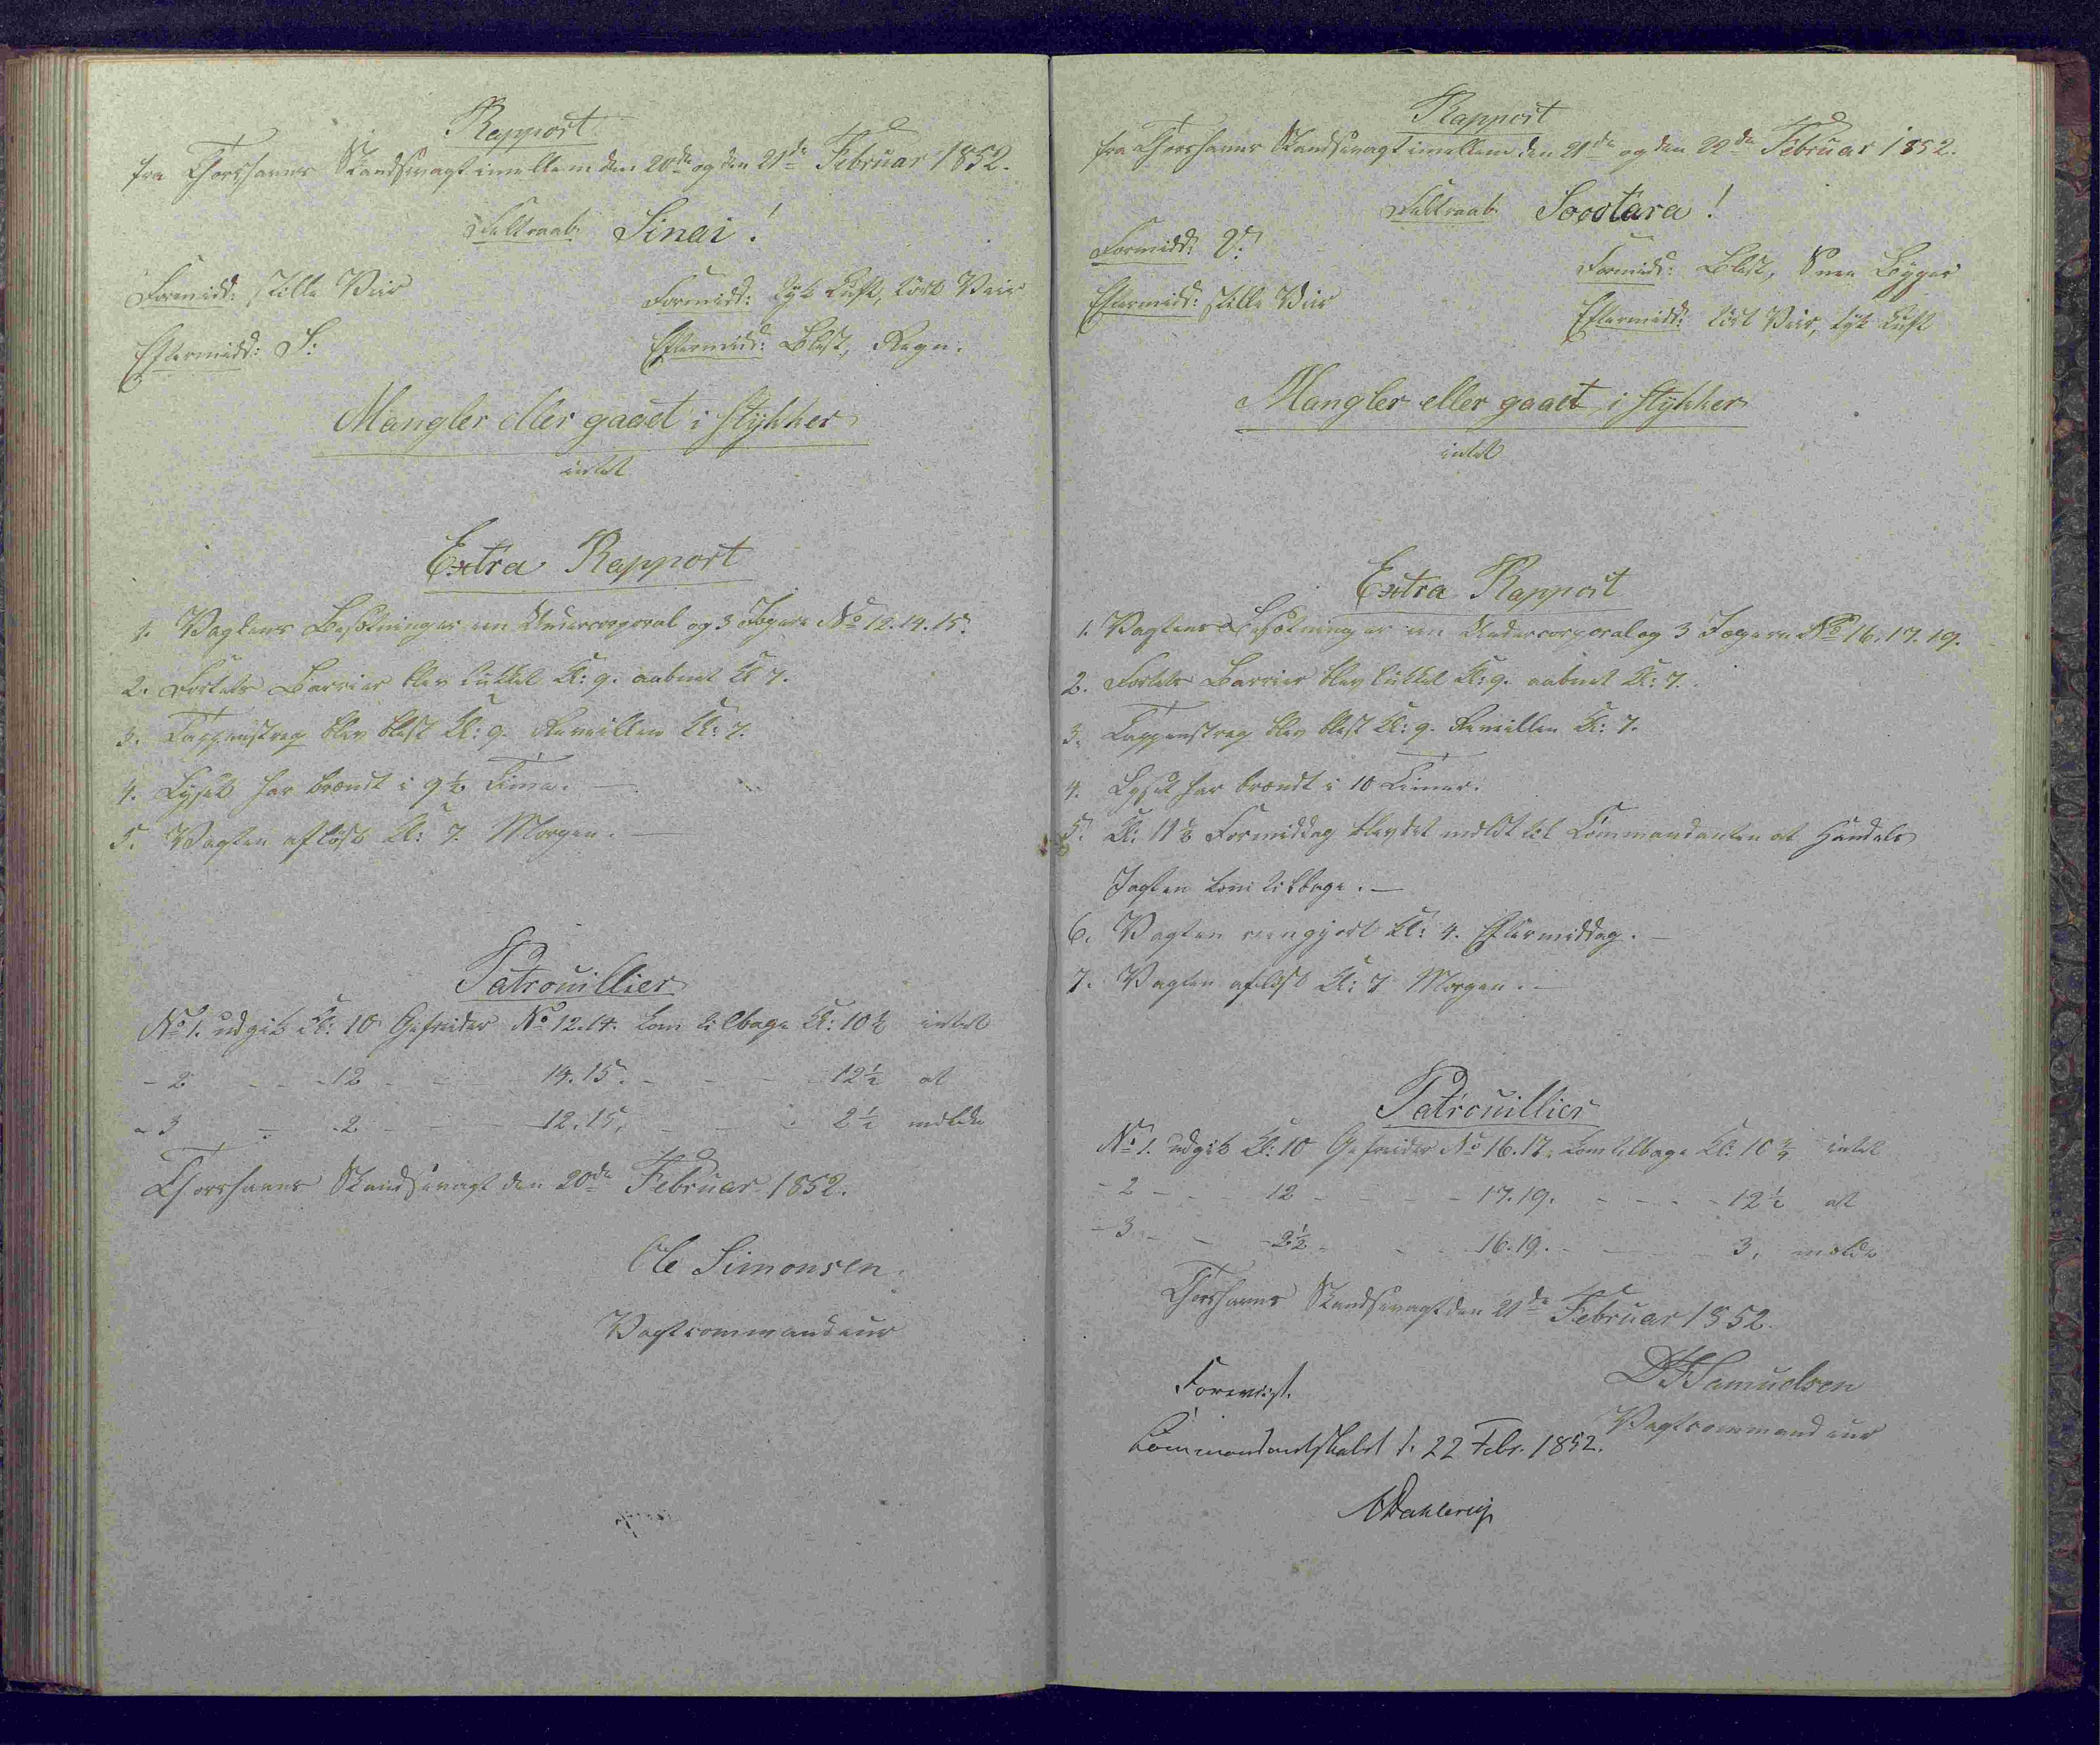 Rapport
fra Thorshavns Skandsevagt imellem den 20de og den 21de Februar 1852.
Feltraab: Sinai!
Formidd: stille Veir
Formidd: tyk Luft, tört Veir
Eftermidd: S:
Eftermidd: Blæst, Regn.
Mangler eller gaaet i Stykker
intet
Extra Rapport
1. Vagtens Besætning er en Undercorporal og 3 Jægere No 12. 14. 15.
2. Fortets Barrier blev lukket Kl: 9. aabnet Kl 7.
3. Tappenstreg blev blæst Kl: 9. Reveillen Kl: 7.
4. Lyset har brændt i 9½ Time. —
5. Vagten aflöst Kl: 7. Morgen. —
Patrouillier
No 1. udgik Kl: 10 Gefreider No 12. 14. kom tilbage Kl: 10½ intet
- 2 - - 12 - - - 14. 15. - - - 12½ at
- 3 - 2 - - - 12. 15. - - - 2½ melde
Thorshavns Skandsevagt den 20de Februar 1852.
Ole Simonsen.
Vagtcommandeur
Rapport
fra Thorshavns Skandsevagt imellem den 21de og den 22de Februar 1852.
Feltraab: Socotara!
Formidd:
Formidd: Blæst, Snee Byger
Eftermidd: stille Veir
Eftermidd: tört Veir, tyk Luft
Mangler eller gaaet i Stykker
intet
Extra Rapport
1. Vagtens Besætning er en Undercorporal og 3 Jægere No 16. 17. 19.
2. Fortets Barrier blev lukket Kl: 9. aabnet Kl: 7.
3. Tappenstreg blev blæst Kl: 9. Reveillen Kl: 7.
4. Lyset har brændt i 10 Timer.
5. Kl: 11½ Formiddag blev det meldt til Commandanten at Handels
Jagten kom tilbage. —
6. Vagten reengjort Kl: 4. Eftermiddag. —
7. Vagten aflöst Kl: 7 Morgen. —
Patrouillier
No 1. udgik Kl: 10 Gefreider No 16. 17. kom tilbage Kl: 10¾ intet
- 2 - - 12 - - - - 17. 19. - - - - 12½ at
- 3 - - 2½ - - 16. 19. - - - 3. melde
Thorshavns Skandsevagt den 21de Februar 1852.
Samuelsen
Vagtcommandeur
Foreviist.
Commandantskabet d. 22 Febr. 1852.
Dahlerup